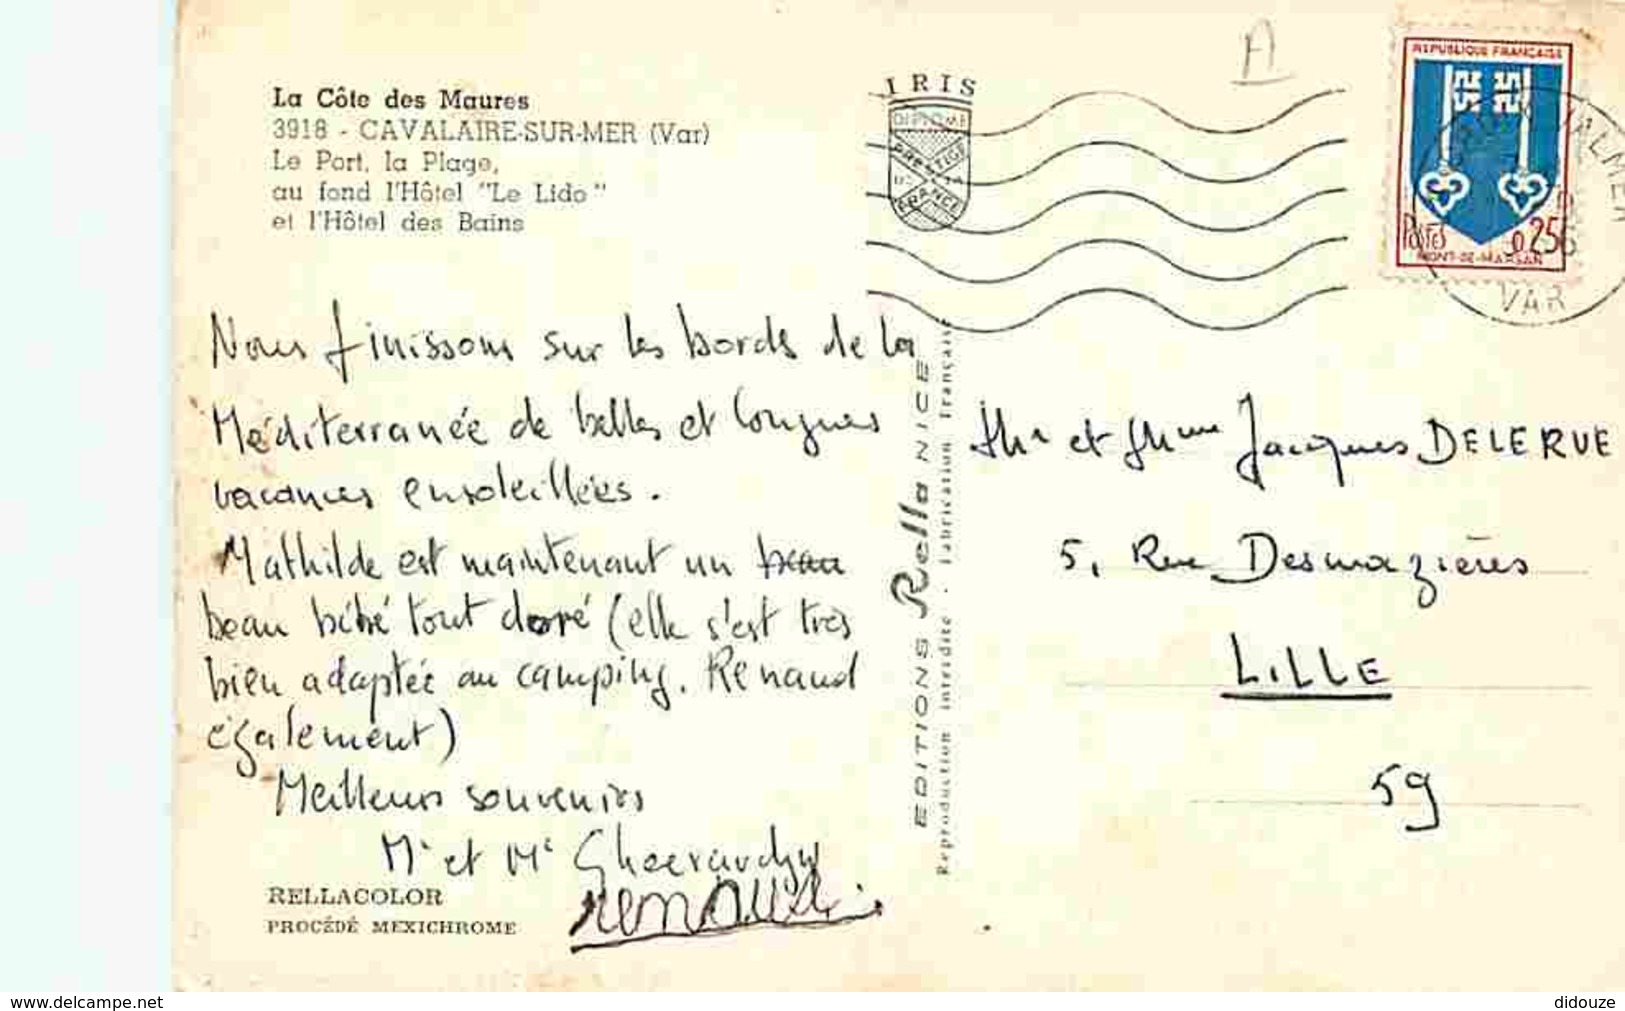 La Côte des Maures
3918 - CAVALAIRE-SUR-MER (Var)
Le Port, la Plage,
au fond l'Hôtel "Le Lido"
et l'Hôtel des Bains
Nous finissons sur les bords de la
Méditerranée de belles et longues
vacances ensoleillées.
Mathilde est maintenant un beau
beau bébé tout doré (elle s'est très
bien adaptée au camping. Renaud
également)
Meilleurs souvenirs
Mr et Me
RENAUD
RELLACOLOR
PROCÉDÉ MEXICHROME
EDITIONS Rella NICE
Reproduction interdite - Fabrication Française
IRIS
DIPLOME
PRESTIGE
DE LA
FRANCE
A
REPUBLIQUE FRANÇAISE
POSTES 0,25
MONT-DE-MARSAN
VAR
Mr et Mme Jacques DELERUE
5, Rue Desmazières
LILLE
59
www.delcampe.net
didouze